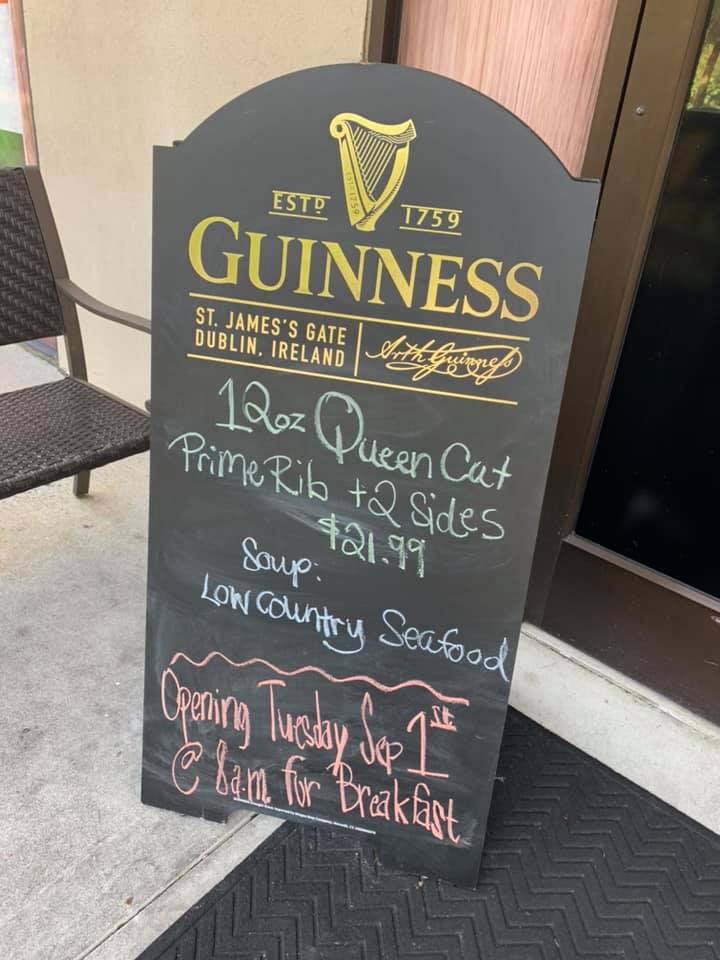 ESTD 1759
GUINNESS
ST. JAMES'S GATE
DUBLIN, IRELAND
Arth Guinness
12oz Queen Cut
Prime Rib +2 Sides
$21.99
Soup:
Low Country Seafood
Opening Tuesday Sep 1st
@ 8a.m. for Breakfast